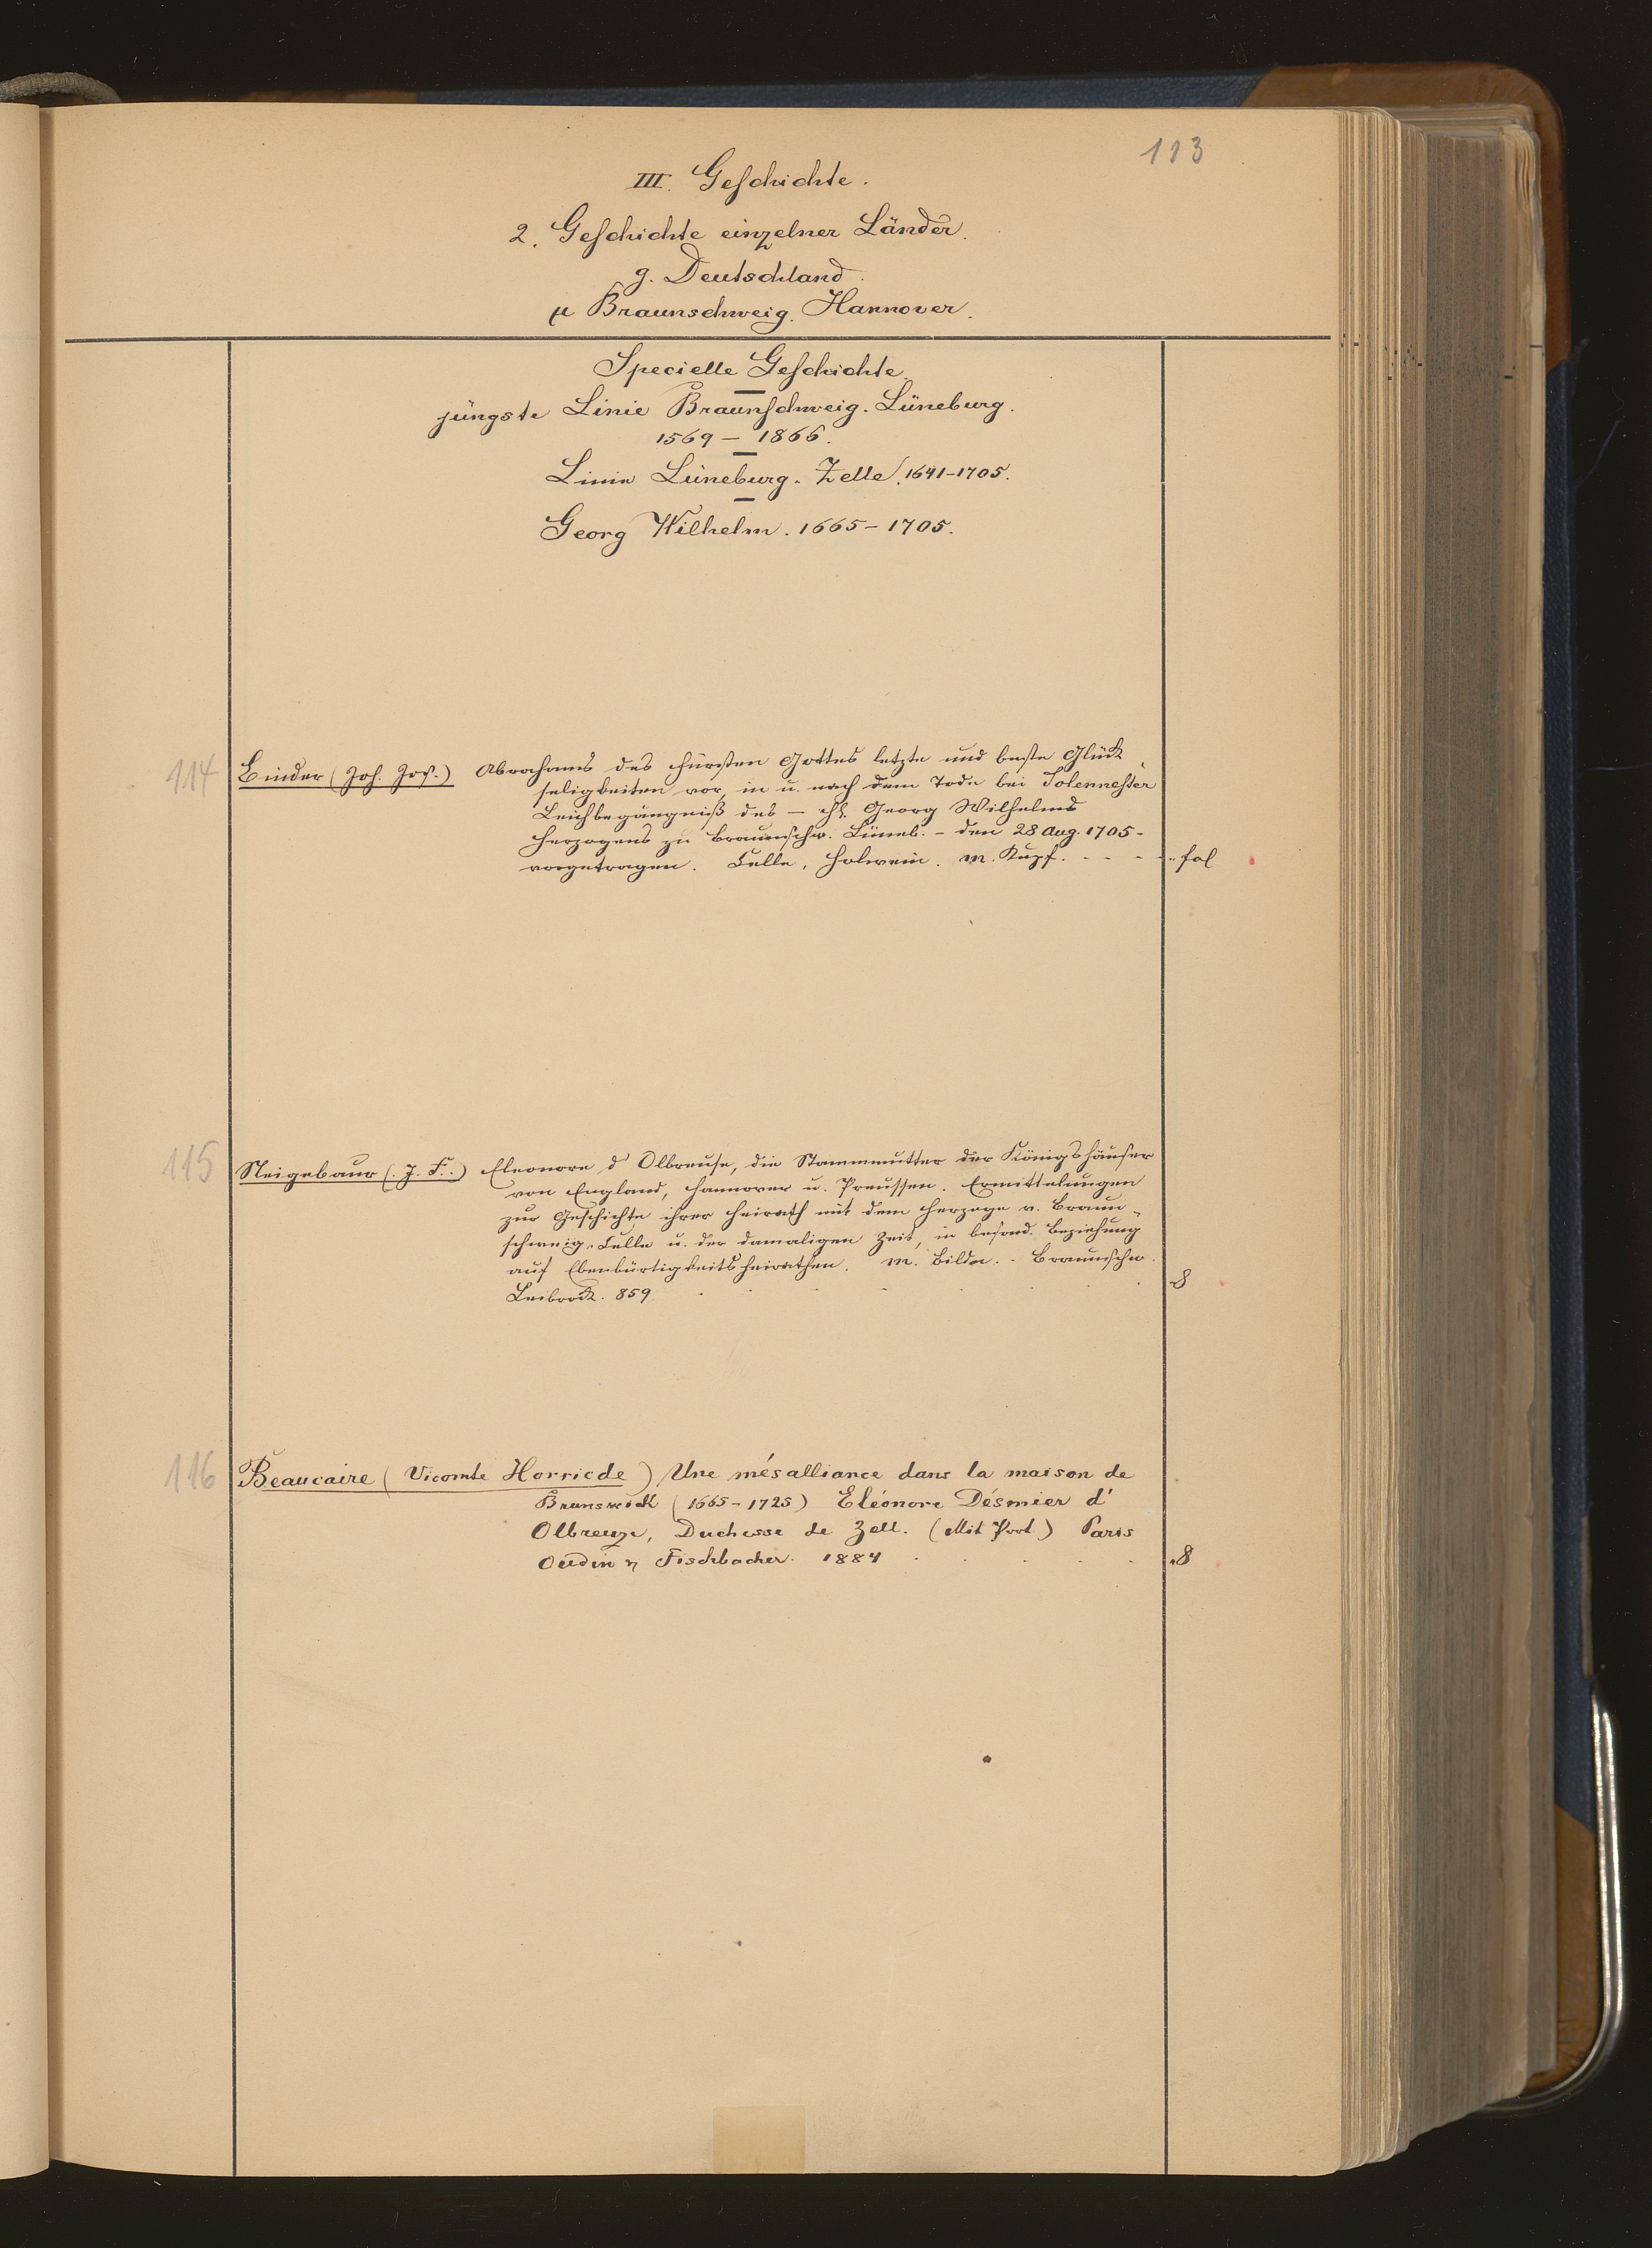 113
III. Geschichte.
2. Geschichte einzelner Länder.
g. Deutschland.
µ Braunschweig. Hannover.
Specielle Geschichte.
jüngste Linie Braunschweig-Lüneburg.
1569 – 1866.
Linie Lüneburg-Zelle. 1641-1705.
Georg Wilhelm. 1665-1705.
114 Binder (Joh. Jos.) Abrahams des Fürsten Gottes letzte und beste Glück-
seligkeiten vor, in u. nach dem Tode bei Solennester
Leichbegängniß des – Georg Wilhelms
Herzogens zu Braunschw. Lüneb. – den 28 Aug. 1705 -
vorgetragen. Celle, Holwein. m. Kupf. fol
115 Neigebaur (J. F.) Eleonore d'Olbreuse, die Stammmutter der Königshäuser
von England, Hannover u. Preussen. Ermittelungen
zur Geschichte ihrer Heirath mit dem Herzoge v. Braun-
schweig-Celle u. der damaligen Zeit, in besond. Beziehung
auf Ebenbürtigkeitsheirathen. m. Bildn. Braunschw.
Leibrock. 859 8
116 Beaucaire (Vicomte Horricde) Une mésalliance dans la maison de
Brunswick (1665-1725) Eléonore Désmier d'
Olbreuze, Duchesse de Zell. (Mit Port.) Paris
Oudin & Fischbacher. 1884 8